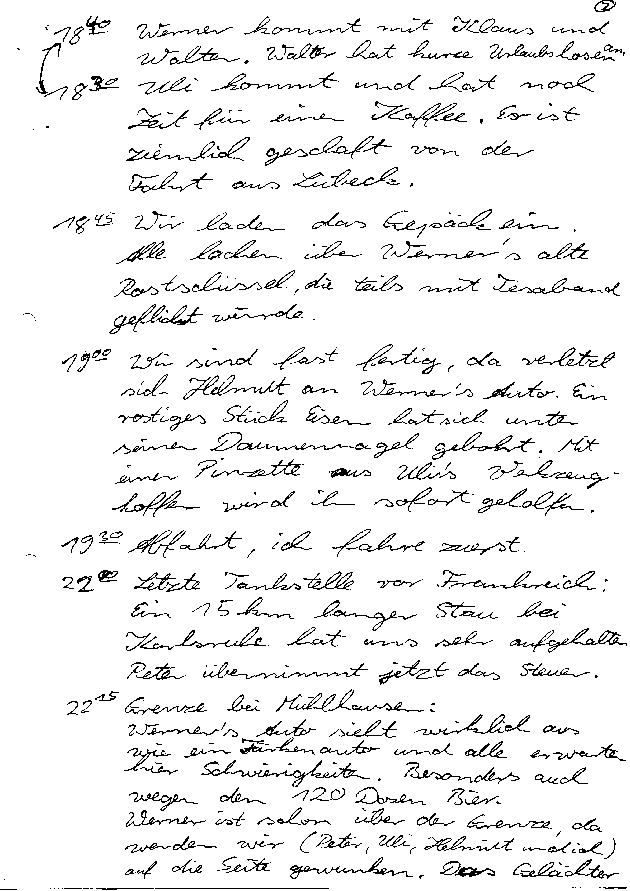 2
18 40 Werner kommt mit Klaus und
Walter. Walter hat kurze Urlaubshosen an.
18 30 Uli kommt und hat noch
Zeit für einen Kaffee. Er ist
ziemlich geschaft von der
Fahrt aus Lübeck.
18 45 Wir laden das Gepäck ein.
Alle lachen über Werner's alte
Rostschüssel, die teils mit Tesaband
geflickt wurde.
19 00 Wir sind fast fertig, da verletzt
sich Helmutt an Werner's Auto. Ein
rostiges Stück Eisen hat sich unter
seinen Daumennagel gebohrt. Mit
einer Pinzette aus Uli's Werkzeug-
koffer wird ihm sofort geholfen.
19 20 Abfahrt, ich fahre zuerst.
22 00 Letzte Tankstelle vor Frankreich:
Ein 15 km langer Stau bei
Karlsruhe hat uns sehr aufgehalten
Peter übernimmt jetzt das Steuer.
22 15 Grenze bei Mühlhausen:
Werner's Auto sieht wirklich aus
wie ein Türkenauto und alle erwarten
hier Schwierigkeiten. Besonders auch
wegen den 120 Dosen Bier.
Werner ist schon über der Grenze, da
werden wir (Peter, Uli, Helmutt und ich)
auf die Seite gewunken. Das Gelächter